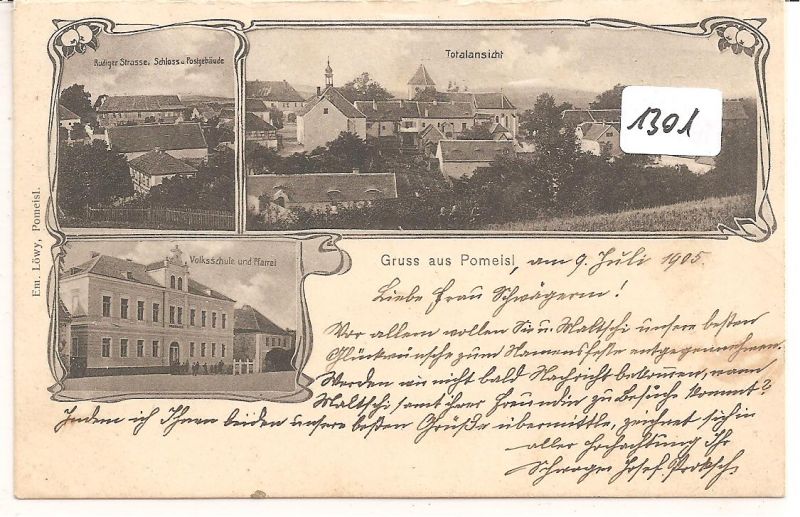 Rudiger Strasse, Schloss u. Postgebäude
Totalansicht
1301
Em. Löwy, Pomeisl.
Volksschule und Pfarrei
Gruss aus Pomeisl, am 9. Juli 1905.
Liebe Frau Schwägerin!
Vor allem wollen Sie u. Maltschi unsere besten
Glückwünsche zum Namensfeste entgegennehmen.
Werden wir nicht bald Nachricht bekommen, wann
Maltschi samt ihrer Freundin zu Besuche kommt?
Indem ich Ihnen beiden unsere besten Grüße übermittle, zeichnet sich in
aller Hochachtung Ihr
Schwager Josef Proksch.